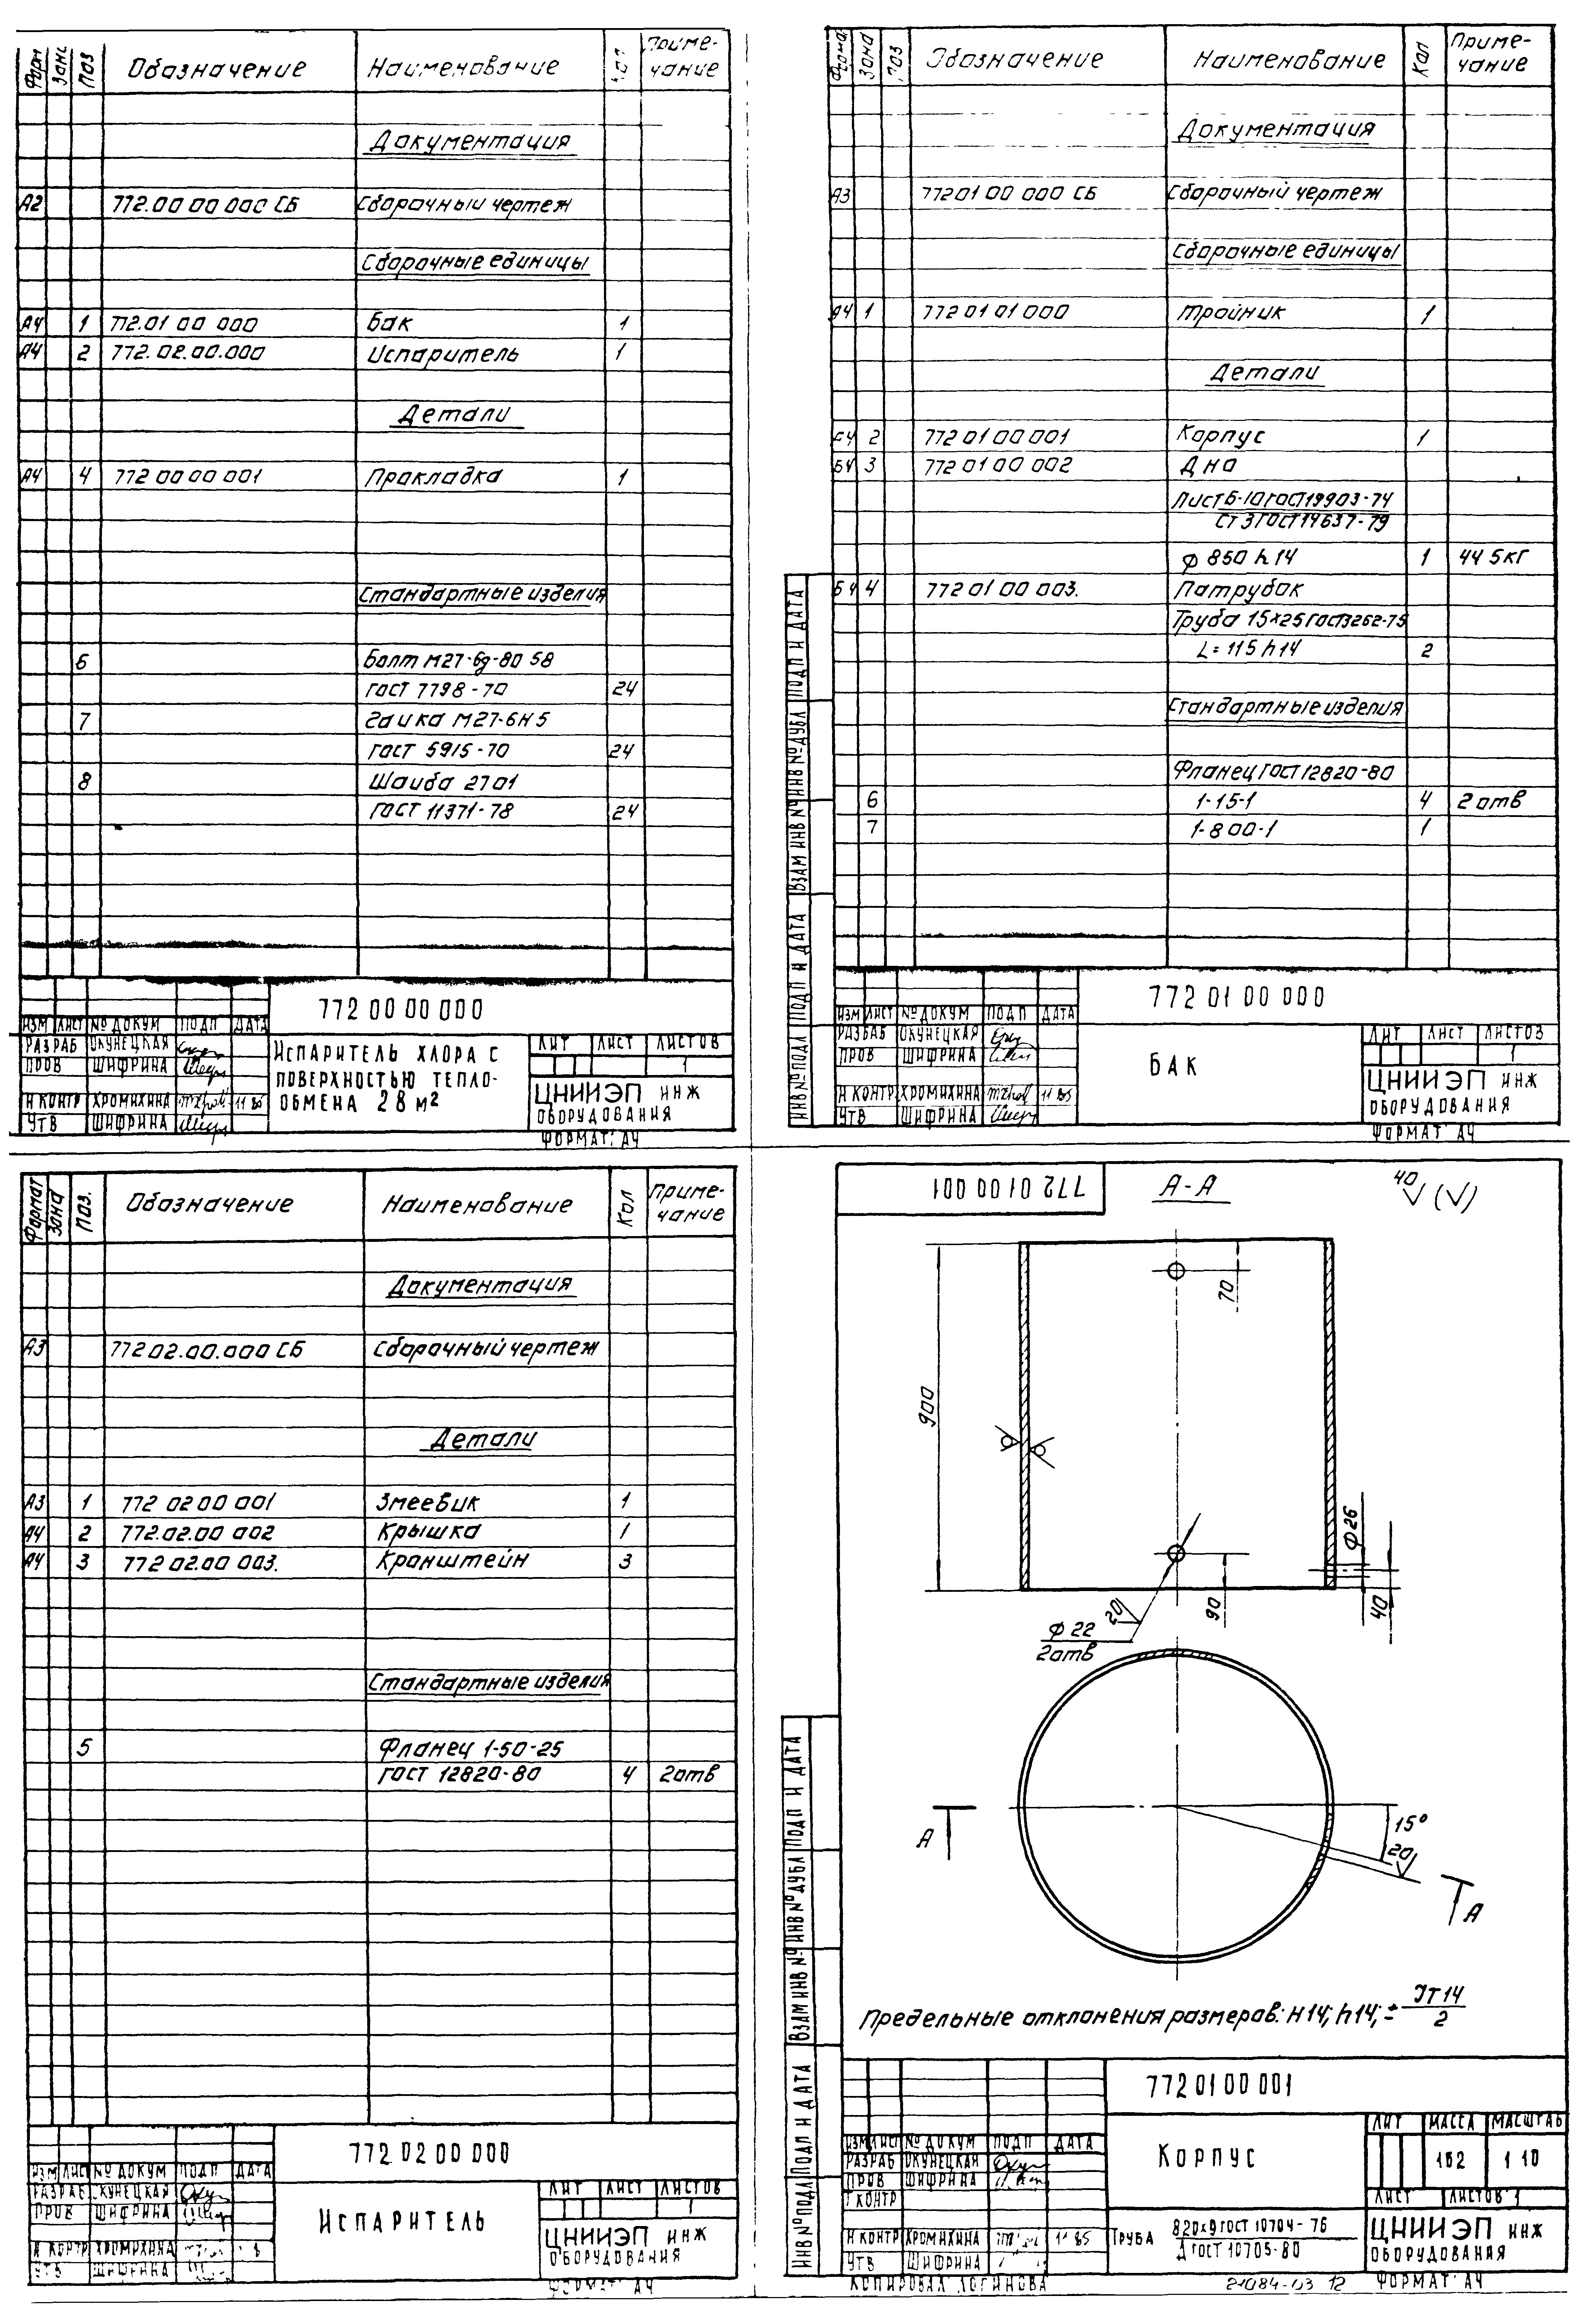 Форм Зона Поз Обозначение Наименование Кол Приме-
чание
Документация
А2 772.00 00 000 СБ Сборочный чертеж
Сборочные единицы
А4 1 772.01 00 000 Бак 1
А4 2 772.02.00.000 Испаритель 1
Детали
А4 4 772 00 00 001 Прокладка 1
Стандартные изделия
6 Болт М27-6g-80 58
ГОСТ 7798-70 24
7 Гайка М27-6Н 5
ГОСТ 5915-70 24
8 Шайба 27 01
ГОСТ 11371-78 24
772 00 00 000
ИЗМ ЛИСТ № ДОКУМ ПОДП ДАТА
РАЗРАБ ОКУНЕЦКАЯ
ПРОВ ШИФРИНА
Н КОНТР ХРОМИХИНА 11 85
УТВ ШИФРИНА
ИСПАРИТЕЛЬ ХЛОРА С
ПОВЕРХНОСТЬЮ ТЕПЛО-
ОБМЕНА 28 м²
ЛИТ ЛИСТ ЛИСТОВ
1
ЦНИИЭП ИНЖ
ОБОРУДОВАНИЯ
ФОРМАТ: А4
Форма Зона Поз Обозначение Наименование Кол Приме-
чание
Документация
А3 77201 00 000 СБ Сборочный чертеж
Сборочные единицы
А4 1 772 01 01 000 Тройник 1
Детали
А4 2 772 01 00 001 Корпус 1
Б4 3 772 01 00 002 Дно
Лист Б-10 ГОСТ 19903-74
Ст 3 ГОСТ 14637-79
ф 850 h 14 1 44 5кг
Б4 4 772 01 00 003. Патрубок
Труба 15×25 ГОСТ 3262-75
L = 115 h 14 2
Стандартные изделия
Фланец ГОСТ 12820-80
6 1-15-1 4 2 отв
7 1-800-1 1
ИНВ № ПОДЛ ПОДП И ДАТА ВЗАМ ИНВ № ИНВ № ДУБЛ ПОДП И ДАТА
772 01 00 000
ИЗМ ЛИСТ № ДОКУМ ПОДП ДАТА
РАЗРАБ ОКУНЕЦКАЯ
ПРОВ ШИФРИНА
Н КОНТР ХРОМИХИНА 11 85
УТВ ШИФРИНА
БАК
ЛИТ ЛИСТ ЛИСТОВ
1
ЦНИИЭП ИНЖ
ОБОРУДОВАНИЯ
ФОРМАТ А4
Формат Зона Поз. Обозначение Наименование Кол Приме-
чание
Документация
А3 772 02.00.000 СБ Сборочный чертеж
Детали
А3 1 772 02 00 001 Змеевик 1
А4 2 772.02.00 002 Крышка 1
А4 3 772 02.00 003. Кронштейн 3
Стандартные изделия
5 Фланец 1-50-25
ГОСТ 12820-80 4 2отв
772 02 00 000
ИЗМ ЛИСТ № ДОКУМ ПОДП ДАТА
РАЗРАБ ОКУНЕЦКАЯ
ПРОВ ШИФРИНА
Н КОНТР ХРОМИХИНА
УТВ ШИФРИНА
ИСПАРИТЕЛЬ
ЛИТ ЛИСТ ЛИСТОВ
1
ЦНИИЭП ИНЖ
ОБОРУДОВАНИЯ
ФОРМАТ А4
772 01 00 001
А-А
40
70
900
Ф 26
40
90
20
Ф 22
2отв
15°
20
А
А
Предельные отклонения размеров: Н14; h14; ± JT14
2
ИНВ № ПОДЛ ПОДП И ДАТА ВЗАМ ИНВ № ИНВ № ДУБЛ ПОДП И ДАТА
772 01 00 001
ИЗМ ЛИСТ № ДОКУМ ПОДП ДАТА
РАЗРАБ ОКУНЕЦКАЯ
ПРОВ ШИФРИНА
Т КОНТР
Н КОНТР ХРОМИХИНА 11 85
УТВ ШИФРИНА
КОРПУС
ЛИТ МАССА МАСШТАБ
162 1 10
ЛИСТ ЛИСТОВ 1
ТРУБА 820×9 ГОСТ 10704-76
Д ГОСТ 10705-80
ЦНИИЭП ИНЖ
ОБОРУДОВАНИЯ
КОПИРОВАЛ ЛОГИНОВА 21084-03 12 ФОРМАТ А4